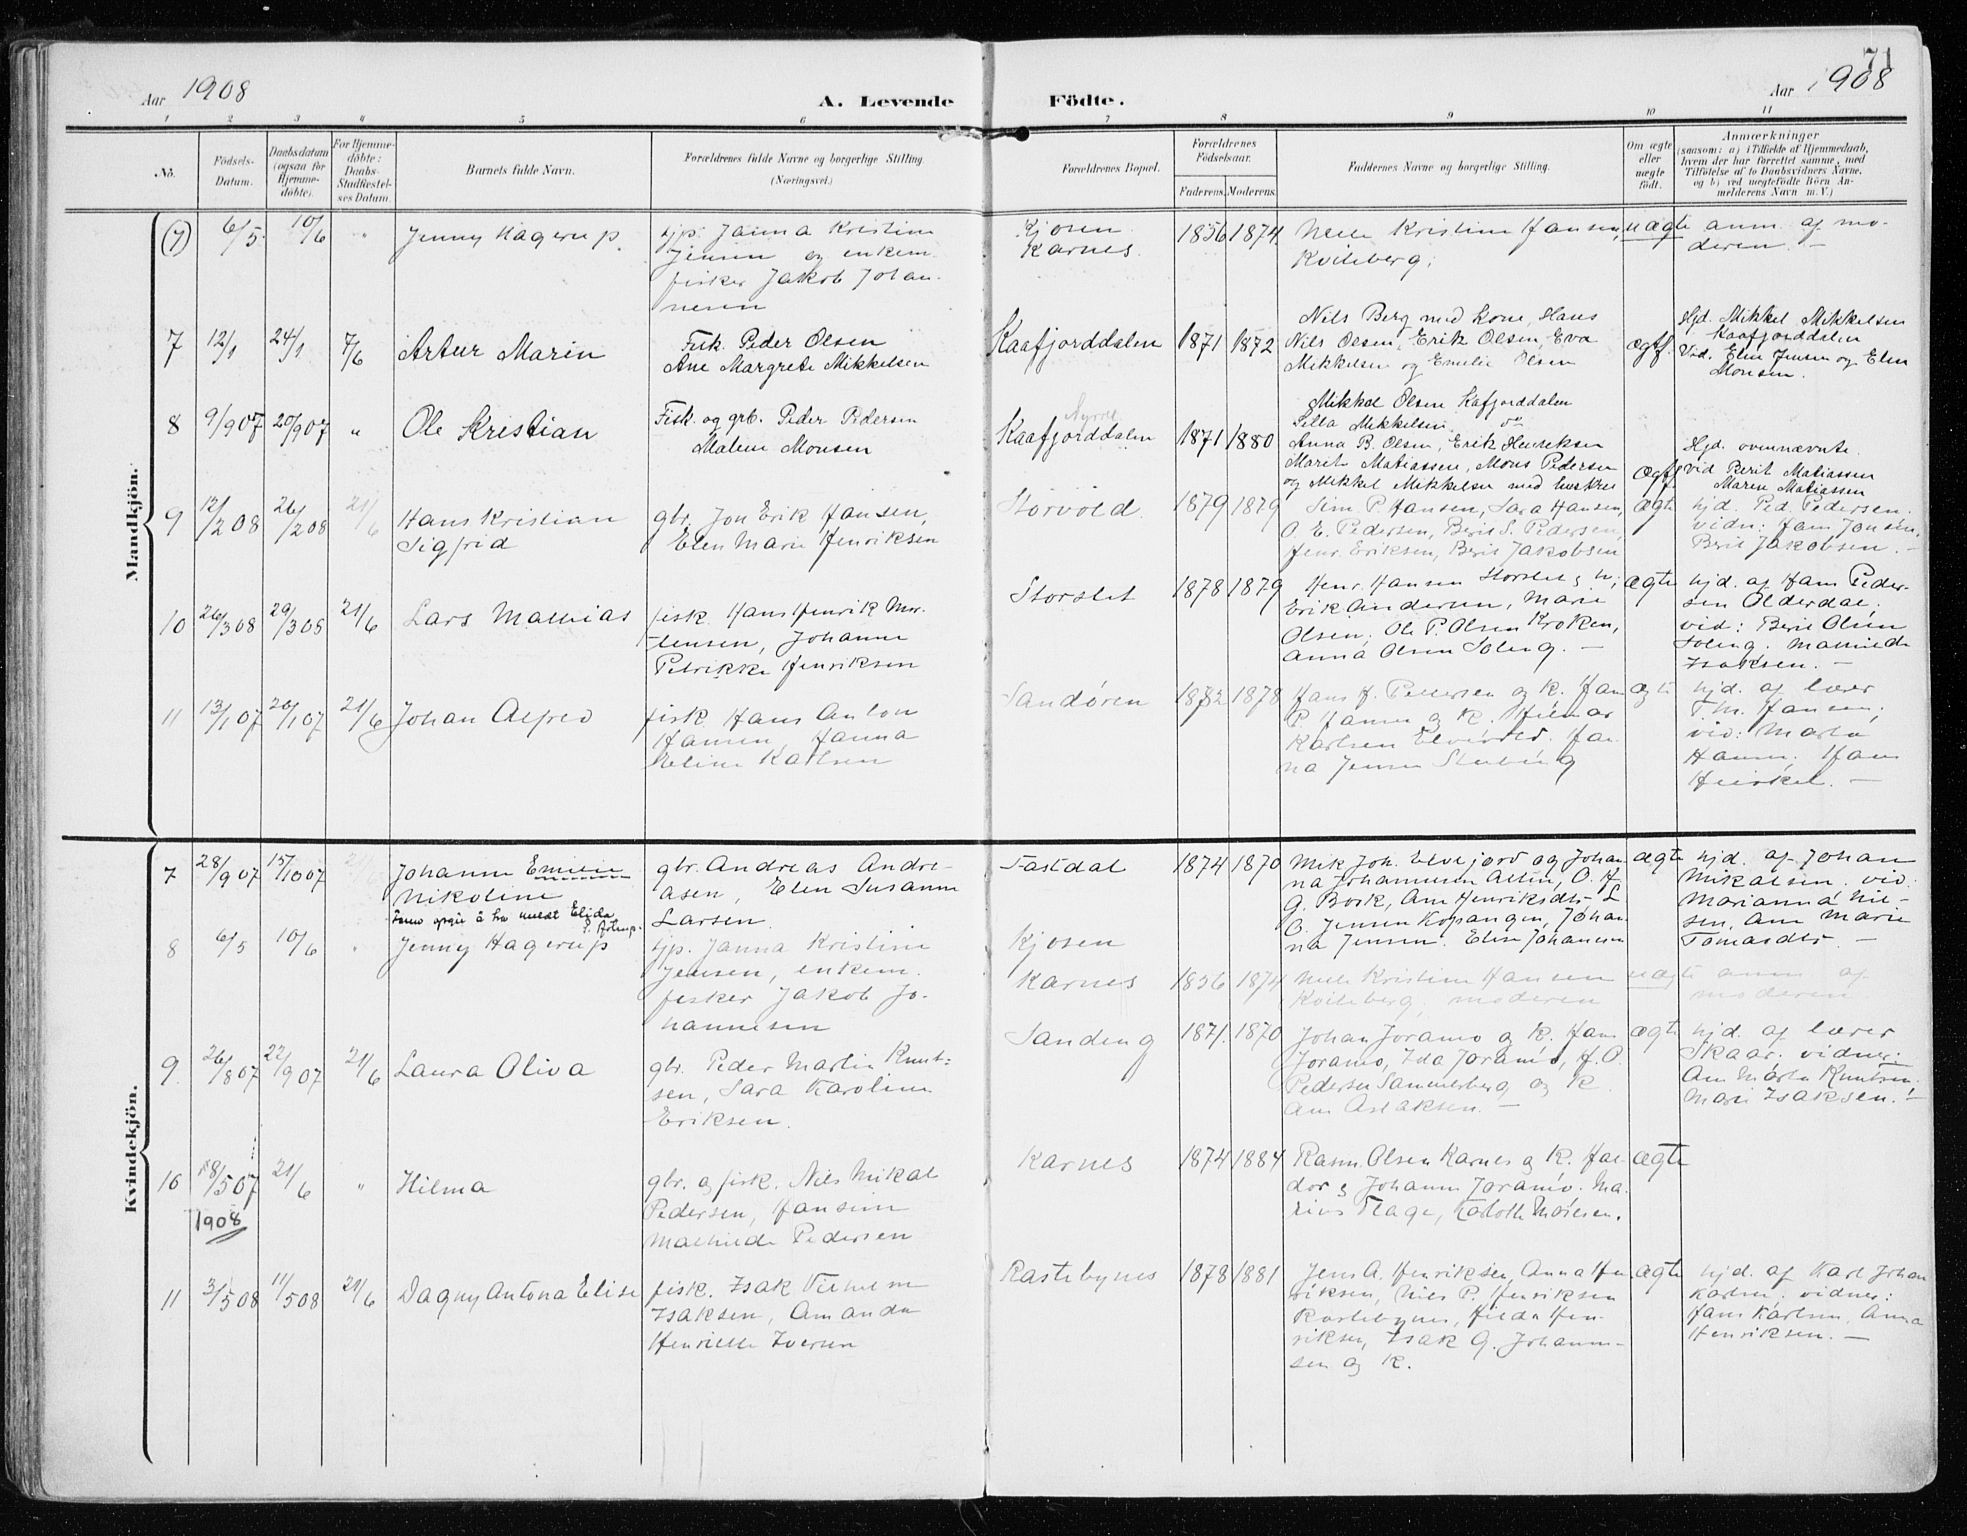 71
Aar 1908
A. Levende
Födte.
Aar 1908
1 2 3 4 5 6 7 8 9 10 11
No.
Födsels-Datum.
Daabsdatum (ogsaa for Hjemmedöbte).
For Hjemmedöbte: Daabs-Stadfæstelses Datum.
Barnets fulde Navn.
Forældrenes fulde Navne og borgerlige Stilling.
(Næringsvei.)
Forældrenes Bopæl.
Forældrenes Födselsaar.
Faderens. Moderens.
Faddernes Navne og borgerlige Stilling.
Om ægte eller uægte födt.
Anmærkninger
(saasom: a) i Tilfælde af Hjemmedaab, hvem der har forrettet samme, med Tilföielse af to Daabsvidners Navne, og b) ved uægtefödte Börn Anmelderens Navn m. V.)
Mandkjön.
(7) 6/5 10/6 " Jenny Hagerup. pp. Janna Kristine
Jensen og enkem.
fisker Jakob Johan-
nesen
Kjosen
Karnes. 1856 1874 Nele Kristine Hansen,
Kviteberg;
uægte anm. af mo-
deren. –
7 12/1 24/1 7/6 Artur Marin Fisk. Peder Olsen
Ane Margrete Mikkelsen
Kaafjorddalen 1871 1872 Nils Berg med kone, Hans
Nils Olsen, Erik Olsen, Eva
Mikkelsen og Emelie Olsen
ægtf. Hjd. Mikkel Mikkelsen
Kaafjorddalen
Vid. Elen Jensen og Elen
Monsen.
8 9/907 20/907 " Ole Kristian Fisk. og grb. Peder Pedersen
Malene Monsen
Kaafjorddalen 1871 1880 Mikkel Olsen Kafjorddalen
Silla Mikkelsen
Anna B. Olsen, Erik Henriksen
Marit Matiassen, Mons Pedersen
og Mikkel Mikkelsen med hustru
ægtf. Hjd. ovennævnte.
Vid Berit Matiassen
Maren Matiassen
9 12/2 08 26/2 08 21/6 Hans Kristian
Sigfrid
gbr. Jon Erik Hansen,
Elen Marie Henriksen
Storvold 1879 1879 Sim. P. Hansen, Sara Hansen,
O. E. Pedersen, Berit S. Pedersen,
Henr. Eriksen, Berit Jakobsen
ægte hjd. Ped. Pedersen.
vidn: Hans Jonsen,
Berit Jakobsen. –
10 26/3 08 29/3 08 21/6 Lars Mathias fisk. Hans Henrik Mor-
tensen, Johanne
Petrikke Henriksen
Storslet 1878 1879 Henr. Hansen Storslet
Erik Andersen, Marie
Olsen, Ole P. Olsen Kroken,
Anna Olsen Soleng. –
ægte hjd. af Hans Peder-
sen Olderdal.
vid: Berit Olsen
Soleng. Mathilde
Isaksen. –
11 13/1 07 20/1 07 21/6 Johan Alfred fisk. Hans Anton
Hansen, Hanna
Karlsen
Sandøren 1872 1878 Hans H. Pettersen og K. Hans
P. Hansen og K. Hilmar
Karlsen Elvevold. Han-
na Jensen
ægte hjd. af lærer
T. M. Hansen;
vid: Marta
Hansen. Hans
–
Kvindekjön.
7 28/9 07 15/10 07 Johanne Emilie
Nikoline
gbr. Andreas Andre-
asen, Elen Susanne
Larsen.
Fastdal 1874 1870 Mik Joh. Elvejord og Johan-
na Johannesen
G. Bork, Ane Henriksdtr.
O. Jensen Kopangen, Johan-
na Jensen. Elise Johansen
ægte hjd. af Johan
Mikalsen. vid:
Marianna Nil-
sen, Ane Marie
Tomasdtr. –
8 6/5 10/6 " Jenny Hagerup pp. Janna Kristine
Jensen, enkem.
fisker Jakob Jo-
hannesen
Kjosen
Karnes 1856 1874 Nele Kristine Hansen
Kviteberg, moderen
uægte anm. af
moderen.
9 26/8 07 22/9 07 21/6 Laura Oliva gbr. Peder Martin Knut-
sen, Sara Karoline
Eriksen.
Sandeng 1871. 1870 Johan Joramo og K. Hans
Joramo, Ida Joramo, H. O.
Pedersen Sommerberg og K.
Ane Aslaksen. –
ægte hjd. af lærer
Skaar. vidner:
Ane Marta Knutsen,
Marie Isaksen. –
10 18/5 07 21/6 " Hilma
1908
gbr. og fisk. Nils Mikal
Pedersen, Hansine
Mathilde Pedersen
Karnes 1874 1884 Rasm. Olsen Karnes og K. Hal-
dor & Johanne Joramo. Ma-
rius Flage, Karlotte
ægte
11 3/5 08 11/5 08 21/6 Dagny Antona Elise fisk. Isak Vilhelm
Isaksen, Amanda
Henriette Iversen
Rastebynes 1878 1881 Jens A. Henriksen, Anna Hen-
riksen, Nils P. Henriksen
Rastebynes, Hilda Hen-
riksen, Isak G. Johanne-
sen og K.
ægte hjd. af Karl Johan
Karlsen. vidner:
Hans Karlsen, Anna
Henriksen. –